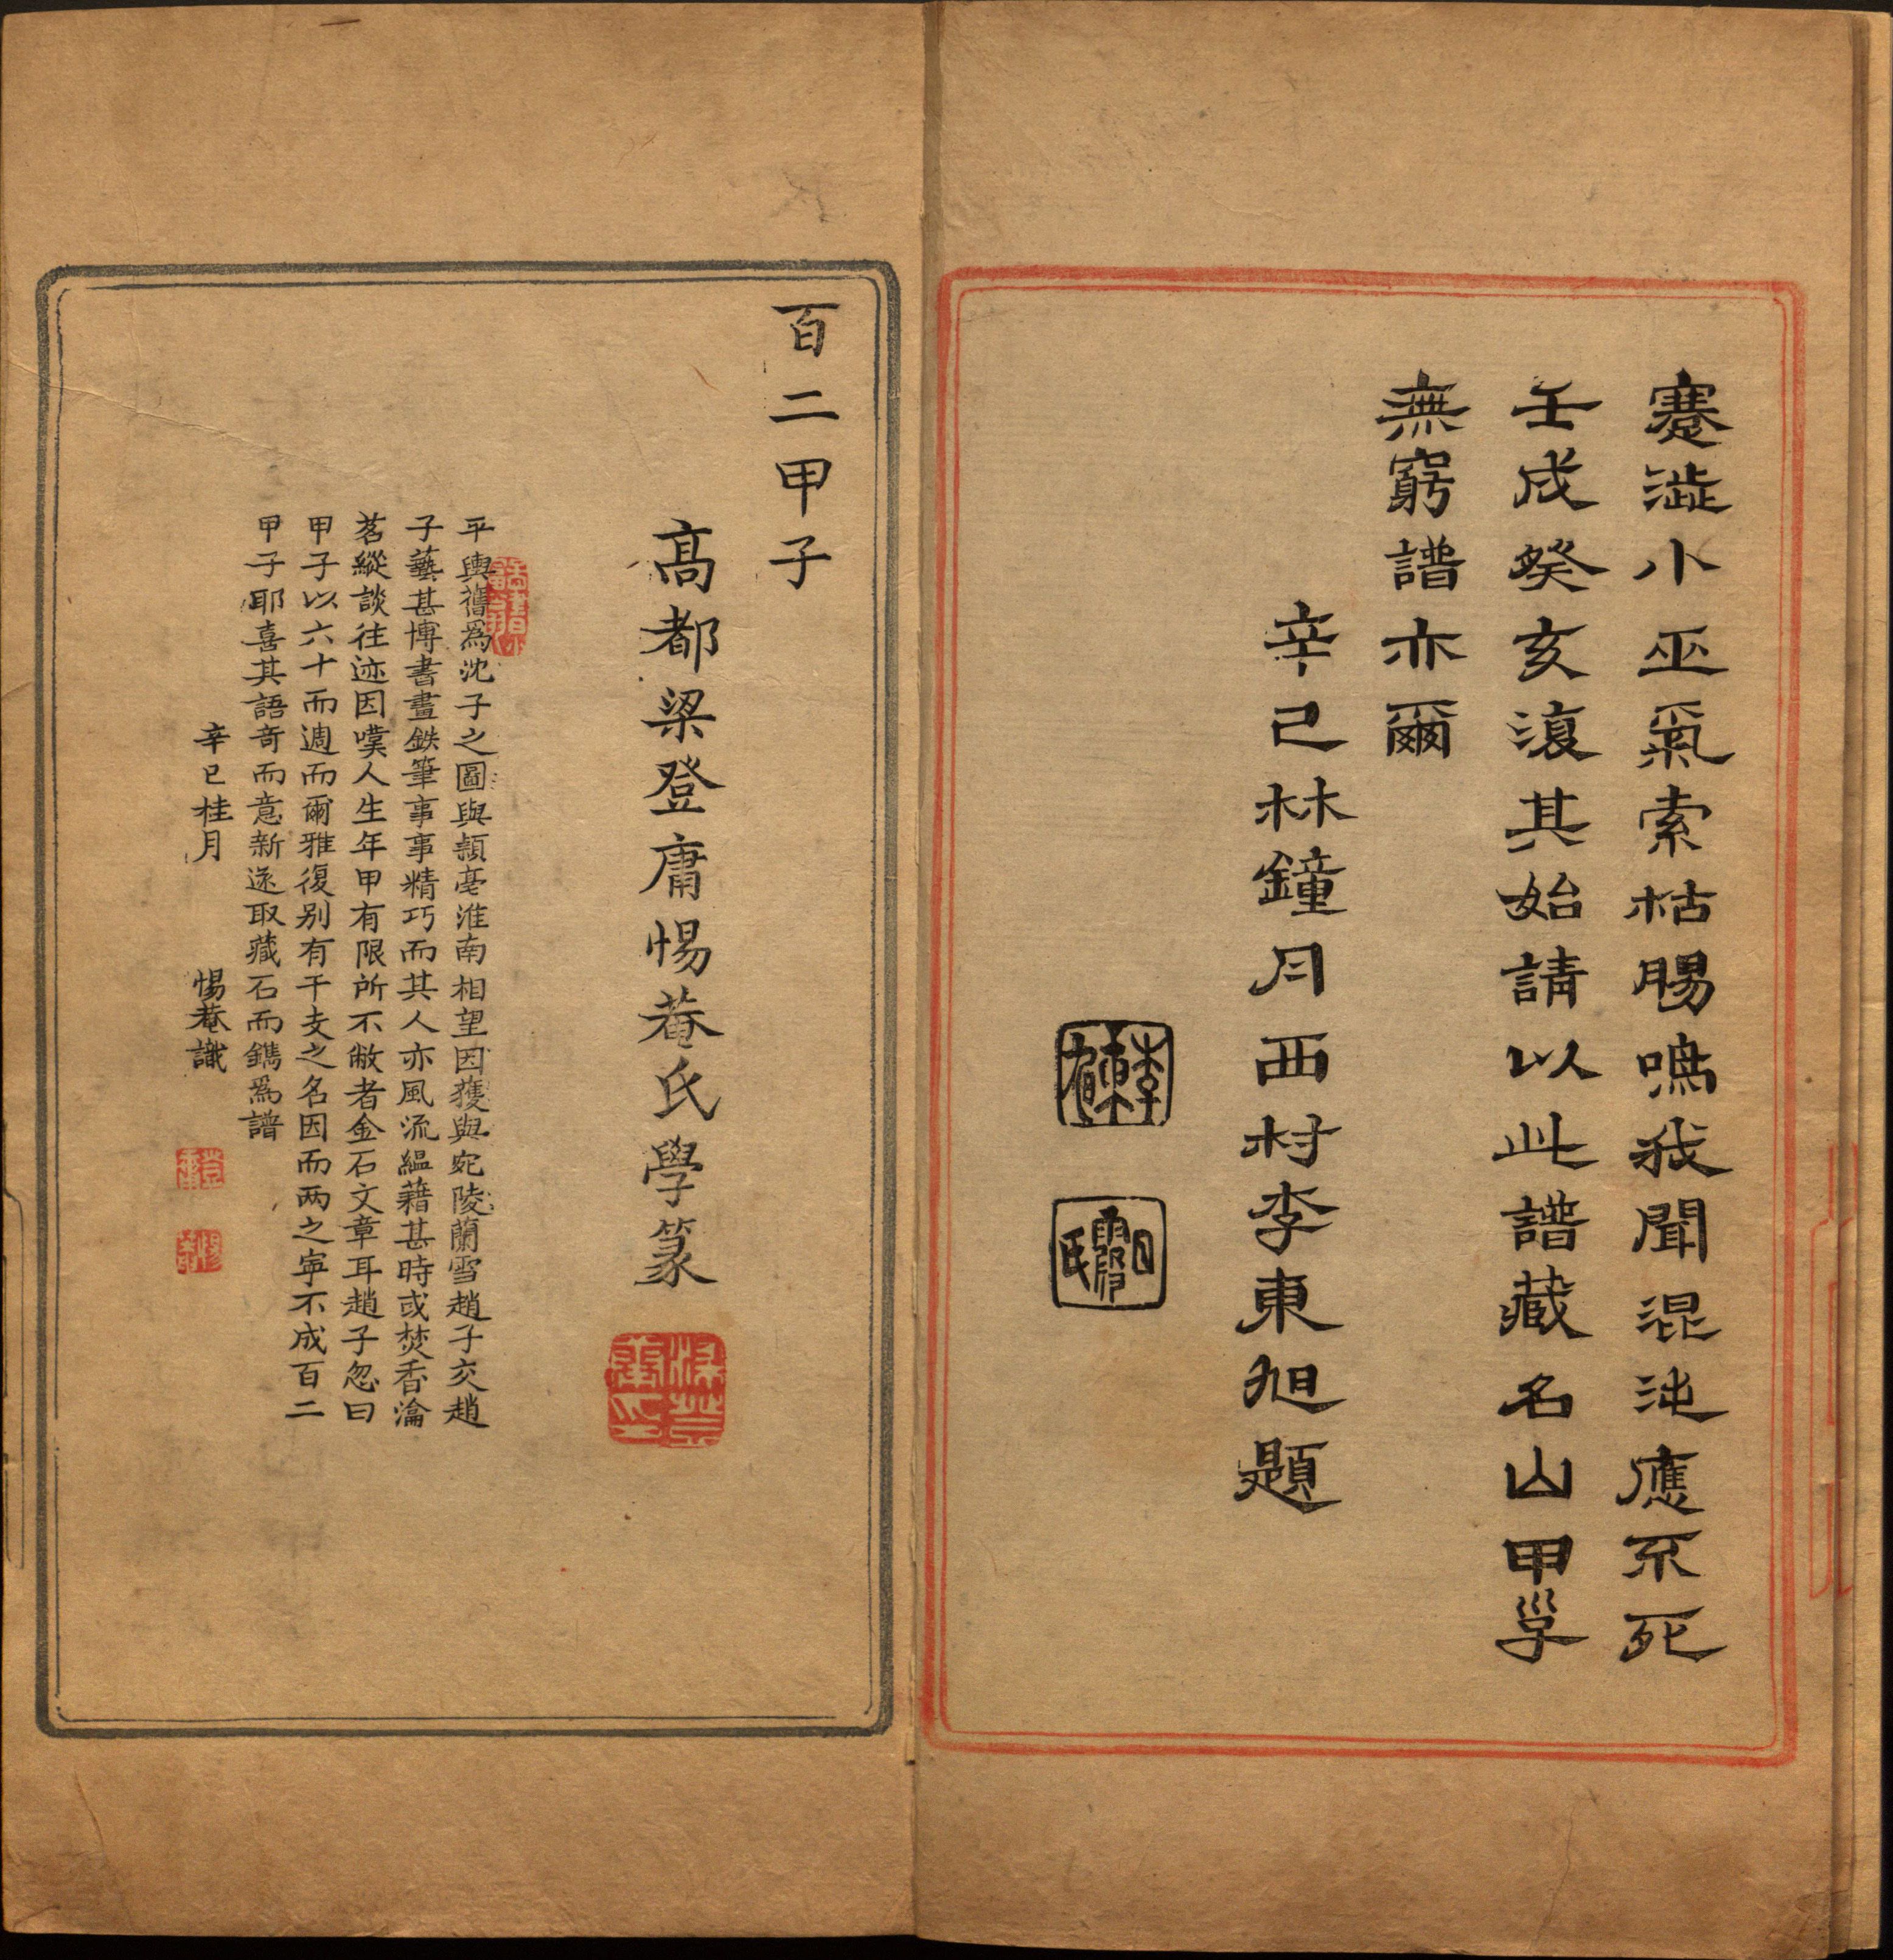 蹇澁小巫氣索枯腸鳴我聞混沌應不死
壬戌癸亥復其始請以此譜藏名山甲孚
無窮譜亦爾
辛巳林鐘月西村李東旭題
百二甲子
高都梁登庸惕菴氏學篆
平輿舊爲沈子之國與潁亳淮南相望因獲與宛陵蘭雪趙子交趙
子藝甚博書畫鉄筆事事精巧而其人亦風流緼藉甚時或焚香瀹
茗縱談往迹因嘆人生年甲有限所不敝者金石文章耳趙子忽曰
甲子以六十而週而爾雅復别有干支之名因而两之寕不成百二
甲子耶喜其語奇而意新遂取藏石而鐫爲譜
辛巳桂月 惕菴識